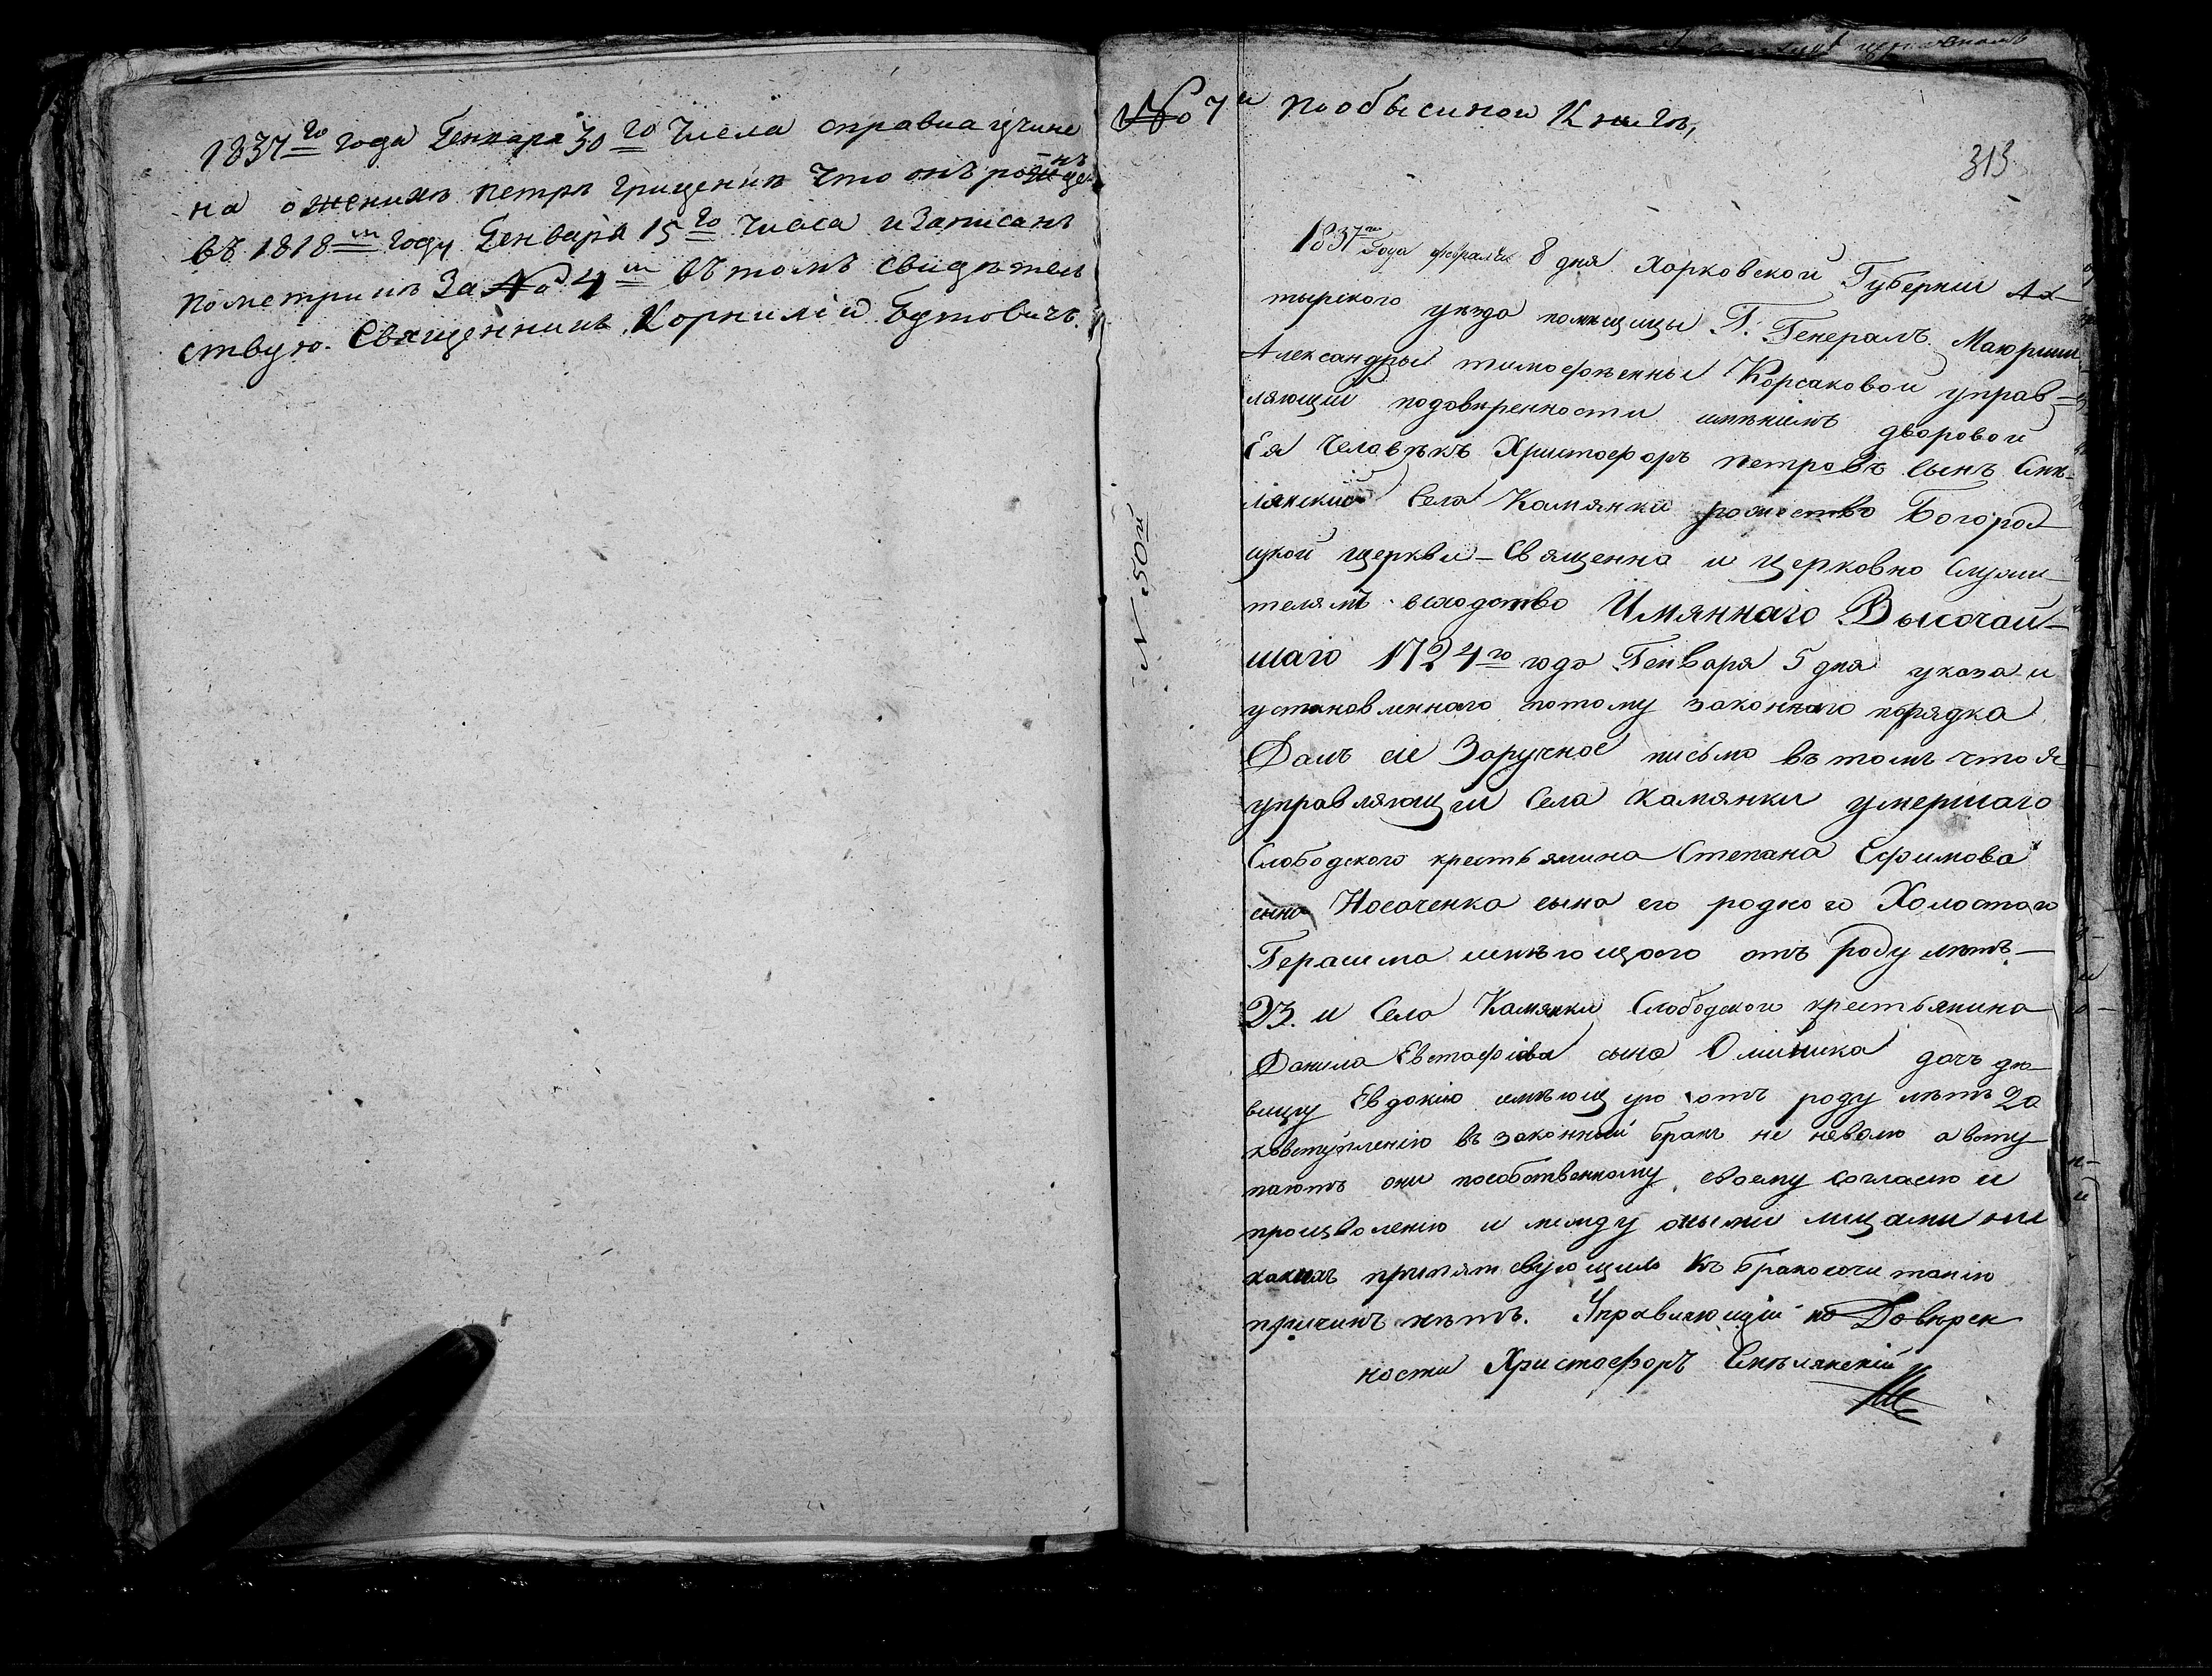 1837го года Генваря 30го числа справка учине
на о женихъ петръ Гриценикъ что онъ рожденъ
въ 1818м году Генваря 15го числа и Записанъ
пометрикъ За No 4м въ томъ свидѣтель
ствую. Священникъ Корнилій Бутовичъ.
No 7й пообысиной Книгѣ,
313
N 50й
1837го Года февраля 8 дня Харковской Губерніи Ах-
тырского уѣзда помѣщицы Г. Генералъ Маюрши
Александры тимофѣевны Корсаковой управ=
ляющій подовѣренности имѣніемъ дворовой
Ея Челавѣкъ Христофоръ петровъ сынъ Смѣ-
лянский Села Камянки рожество Богород
ицкой церкви - Священно и церковно Служи
телямъ вслодство Имяннаго Высочай-
шаго 1724го года Генваря 5 дня указа и
установленнаго потому законнаго порядка
Далъ сіе Заручное письмо въ томъ что я
управляющій Села Камянки умершаго
Слободского крестьянина Степана Ефимова
сына Носаченка сына его родного Холостаго
Герасима имѣющаго отъ роду лѣтъ -
23. и Села Камянки Слободского крестьянина
Данила Евстафіева сына Олійника дочь дѣ
вицу Евдокію имѣющую отъ роду лѣтъ 20
ковступленію въ законный бракъ не неволю а всту
паютъ они пособственному своему согласію и
произволенію и между оными лицами ни
какихъ припятсвующихъ Къ бракосочитанію
причинъ нѣтъ. Управляющій по Довѣрен
ности Христофоръ Смѣлянскій